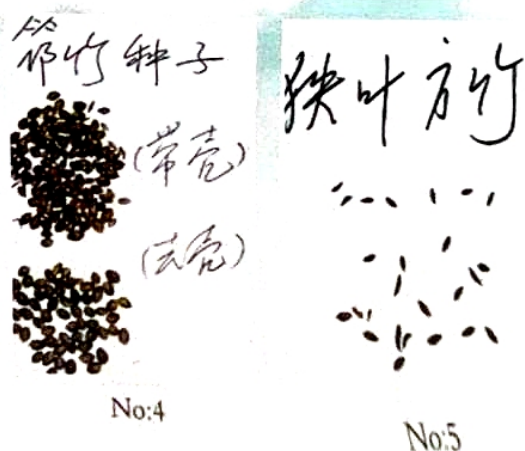 筇竹种子
(带壳)
(去壳)
No:4
狭叶方竹
No:5